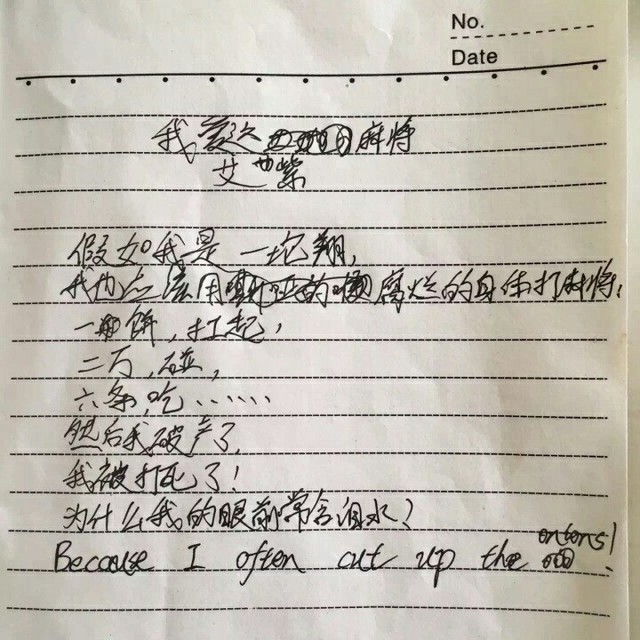 No.
Date
我爱这麻将
艾紫
假如我是一坨翔，
我也应该用腐烂的身体打麻将：
一饼，扛起，
二万，碰，
六条，吃……
然后我破产了，
我被打死了！
为什么我的眼前常含泪水？
Because I often cut up the onions!